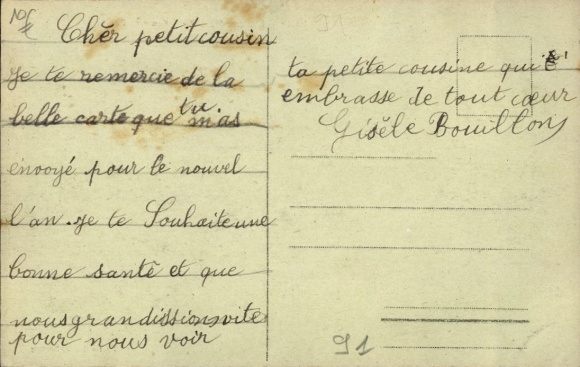 Chèr petit cousin
je te remercie de la
belle carte que tu m'as
envoyé pour le nouvel
l'an. je te Souhaite une
bonne santé et que
nous grandissions vite
pour nous voir
ta petite cousine qui t'
embrasse de tout cœur
Gisèle Bouillon
91
91